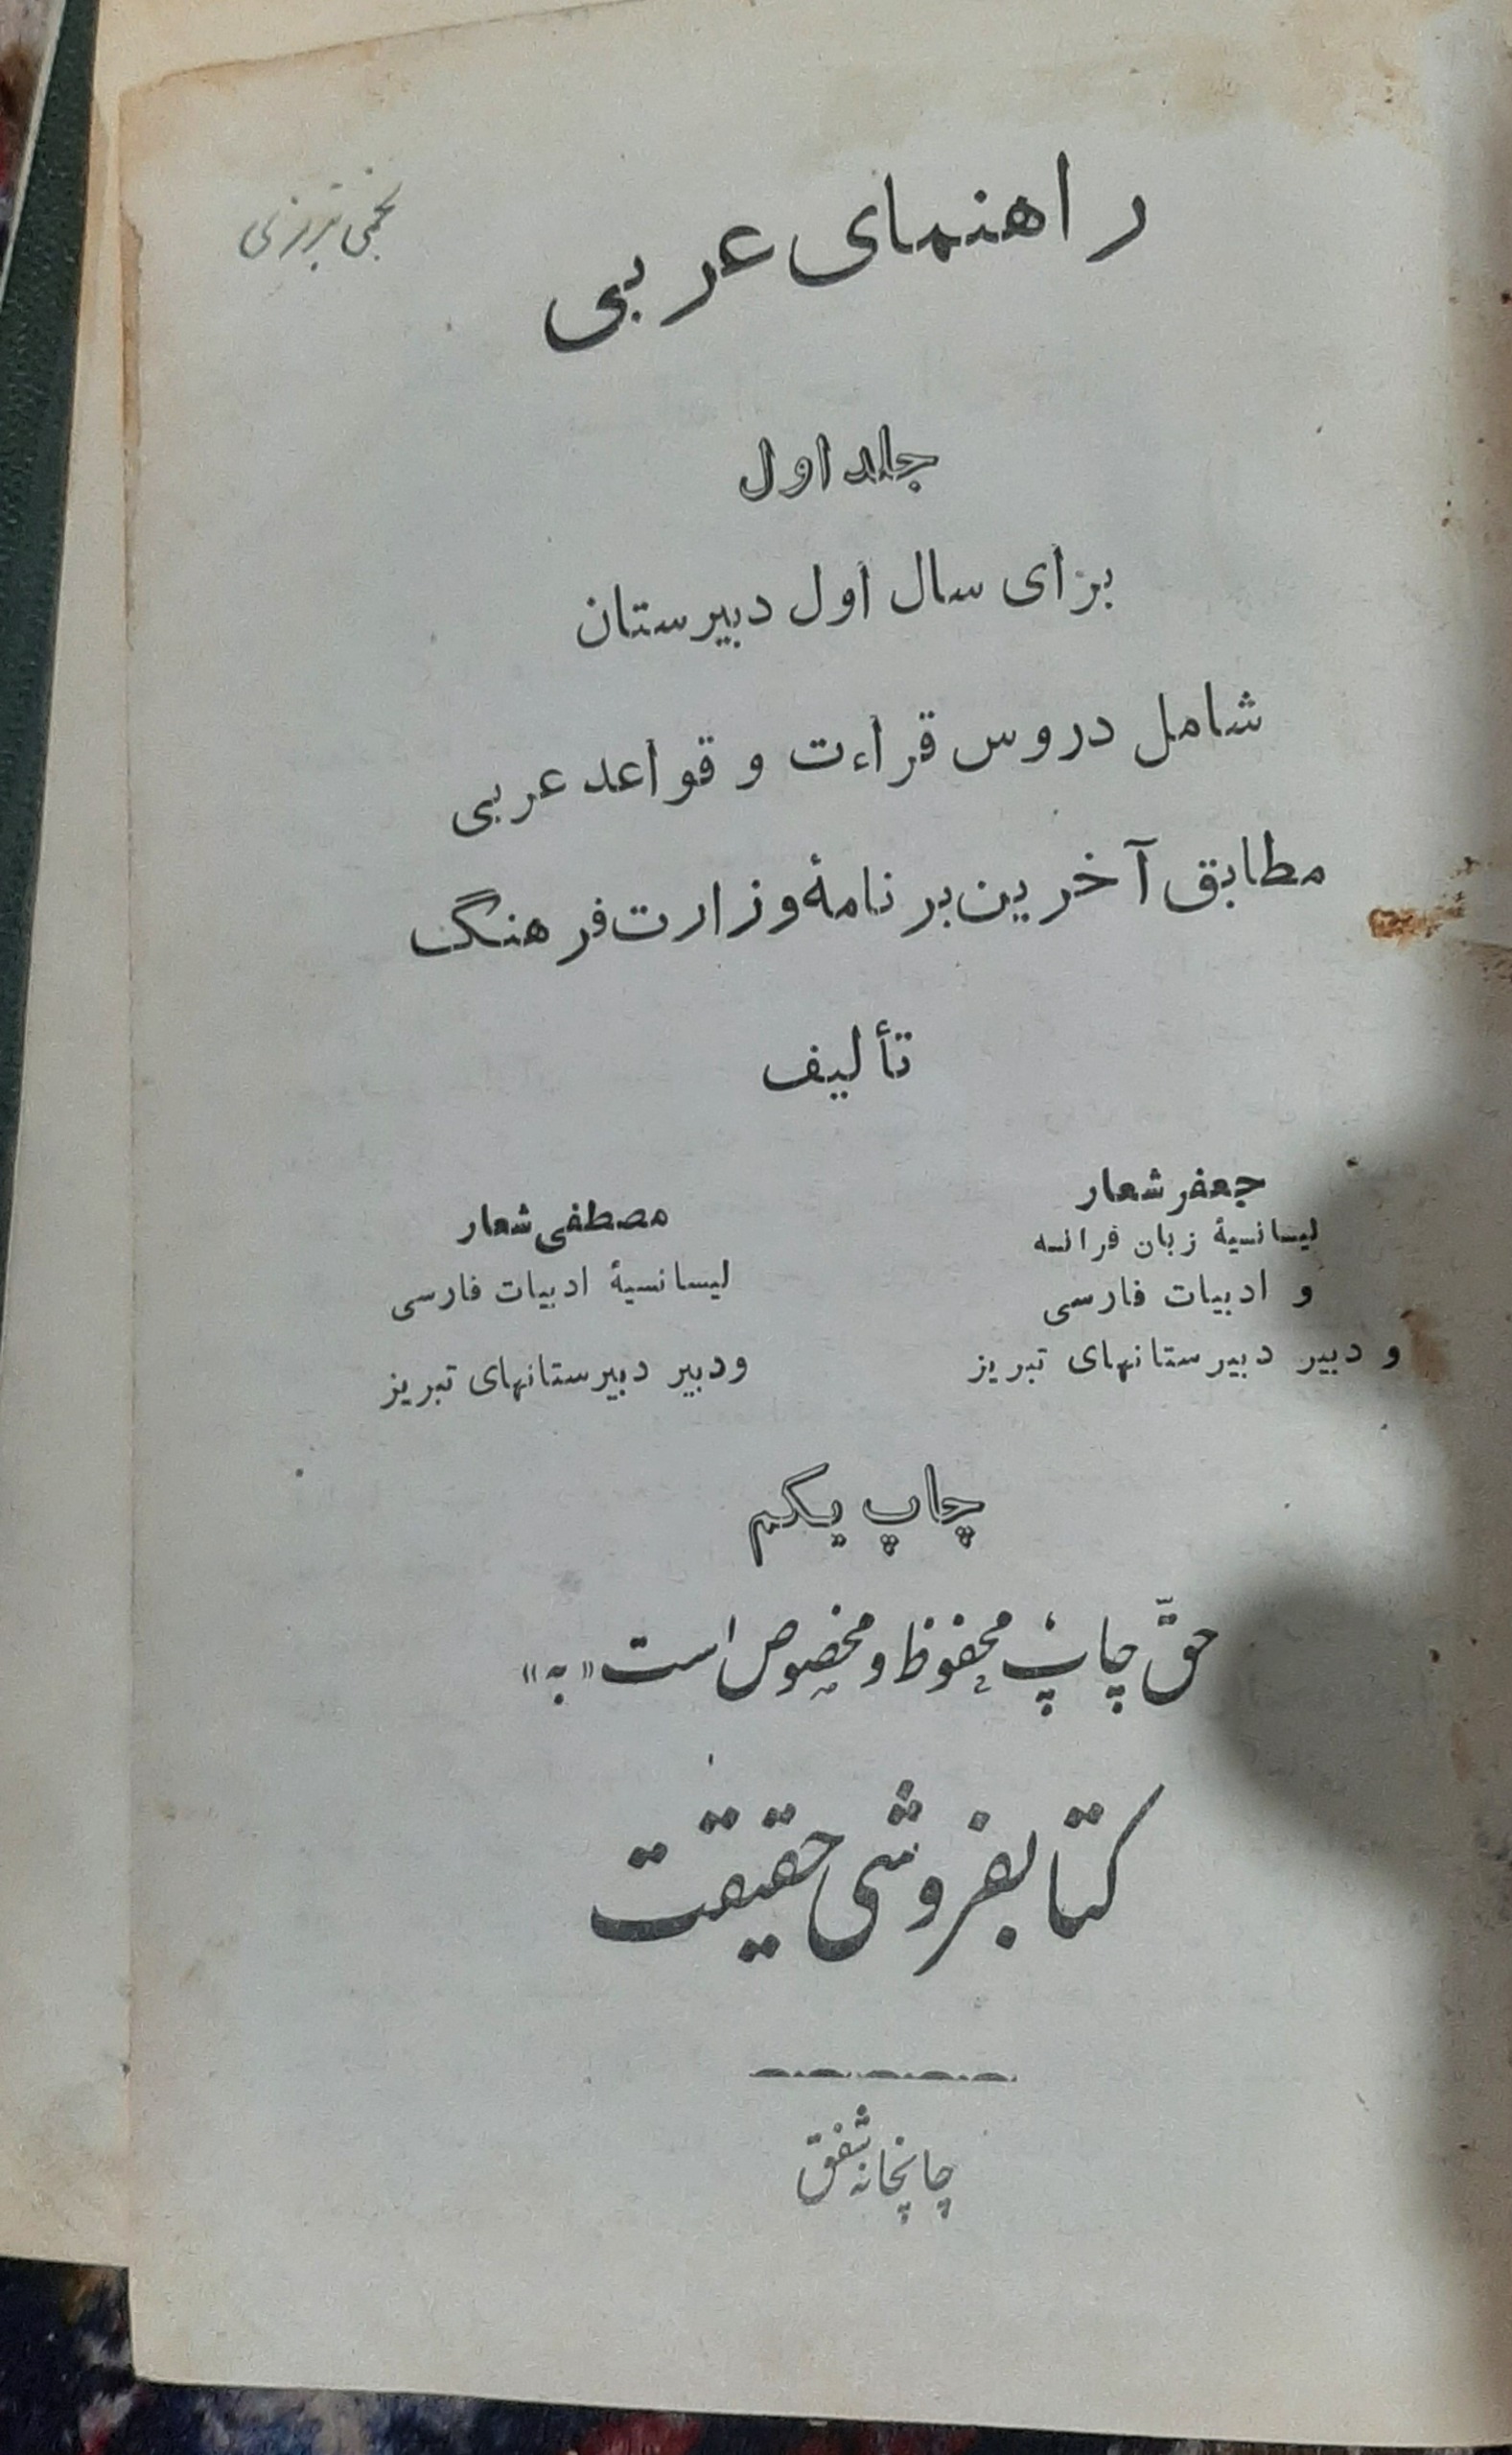 راهنمای عربی
جلد اول
برای سال اول دبیرستان
شامل دروس قراءت و قواعد عربی
مطابق آخرین برنامهٔ وزارت فرهنگ
تألیف
جعفر شعار
لیسانسیهٔ زبان فرانسه
و ادبیات فارسی
و دبیر دبیرستانهای تبریز
مصطفی شعار
لیسانسیهٔ ادبیات فارسی
ودبیر دبیرستانهای تبریز
چاپ یکم
حقّ چاپ محفوظ و مخصوص است «به»
کتابفروشی حقیقت
چاپخانه شفق